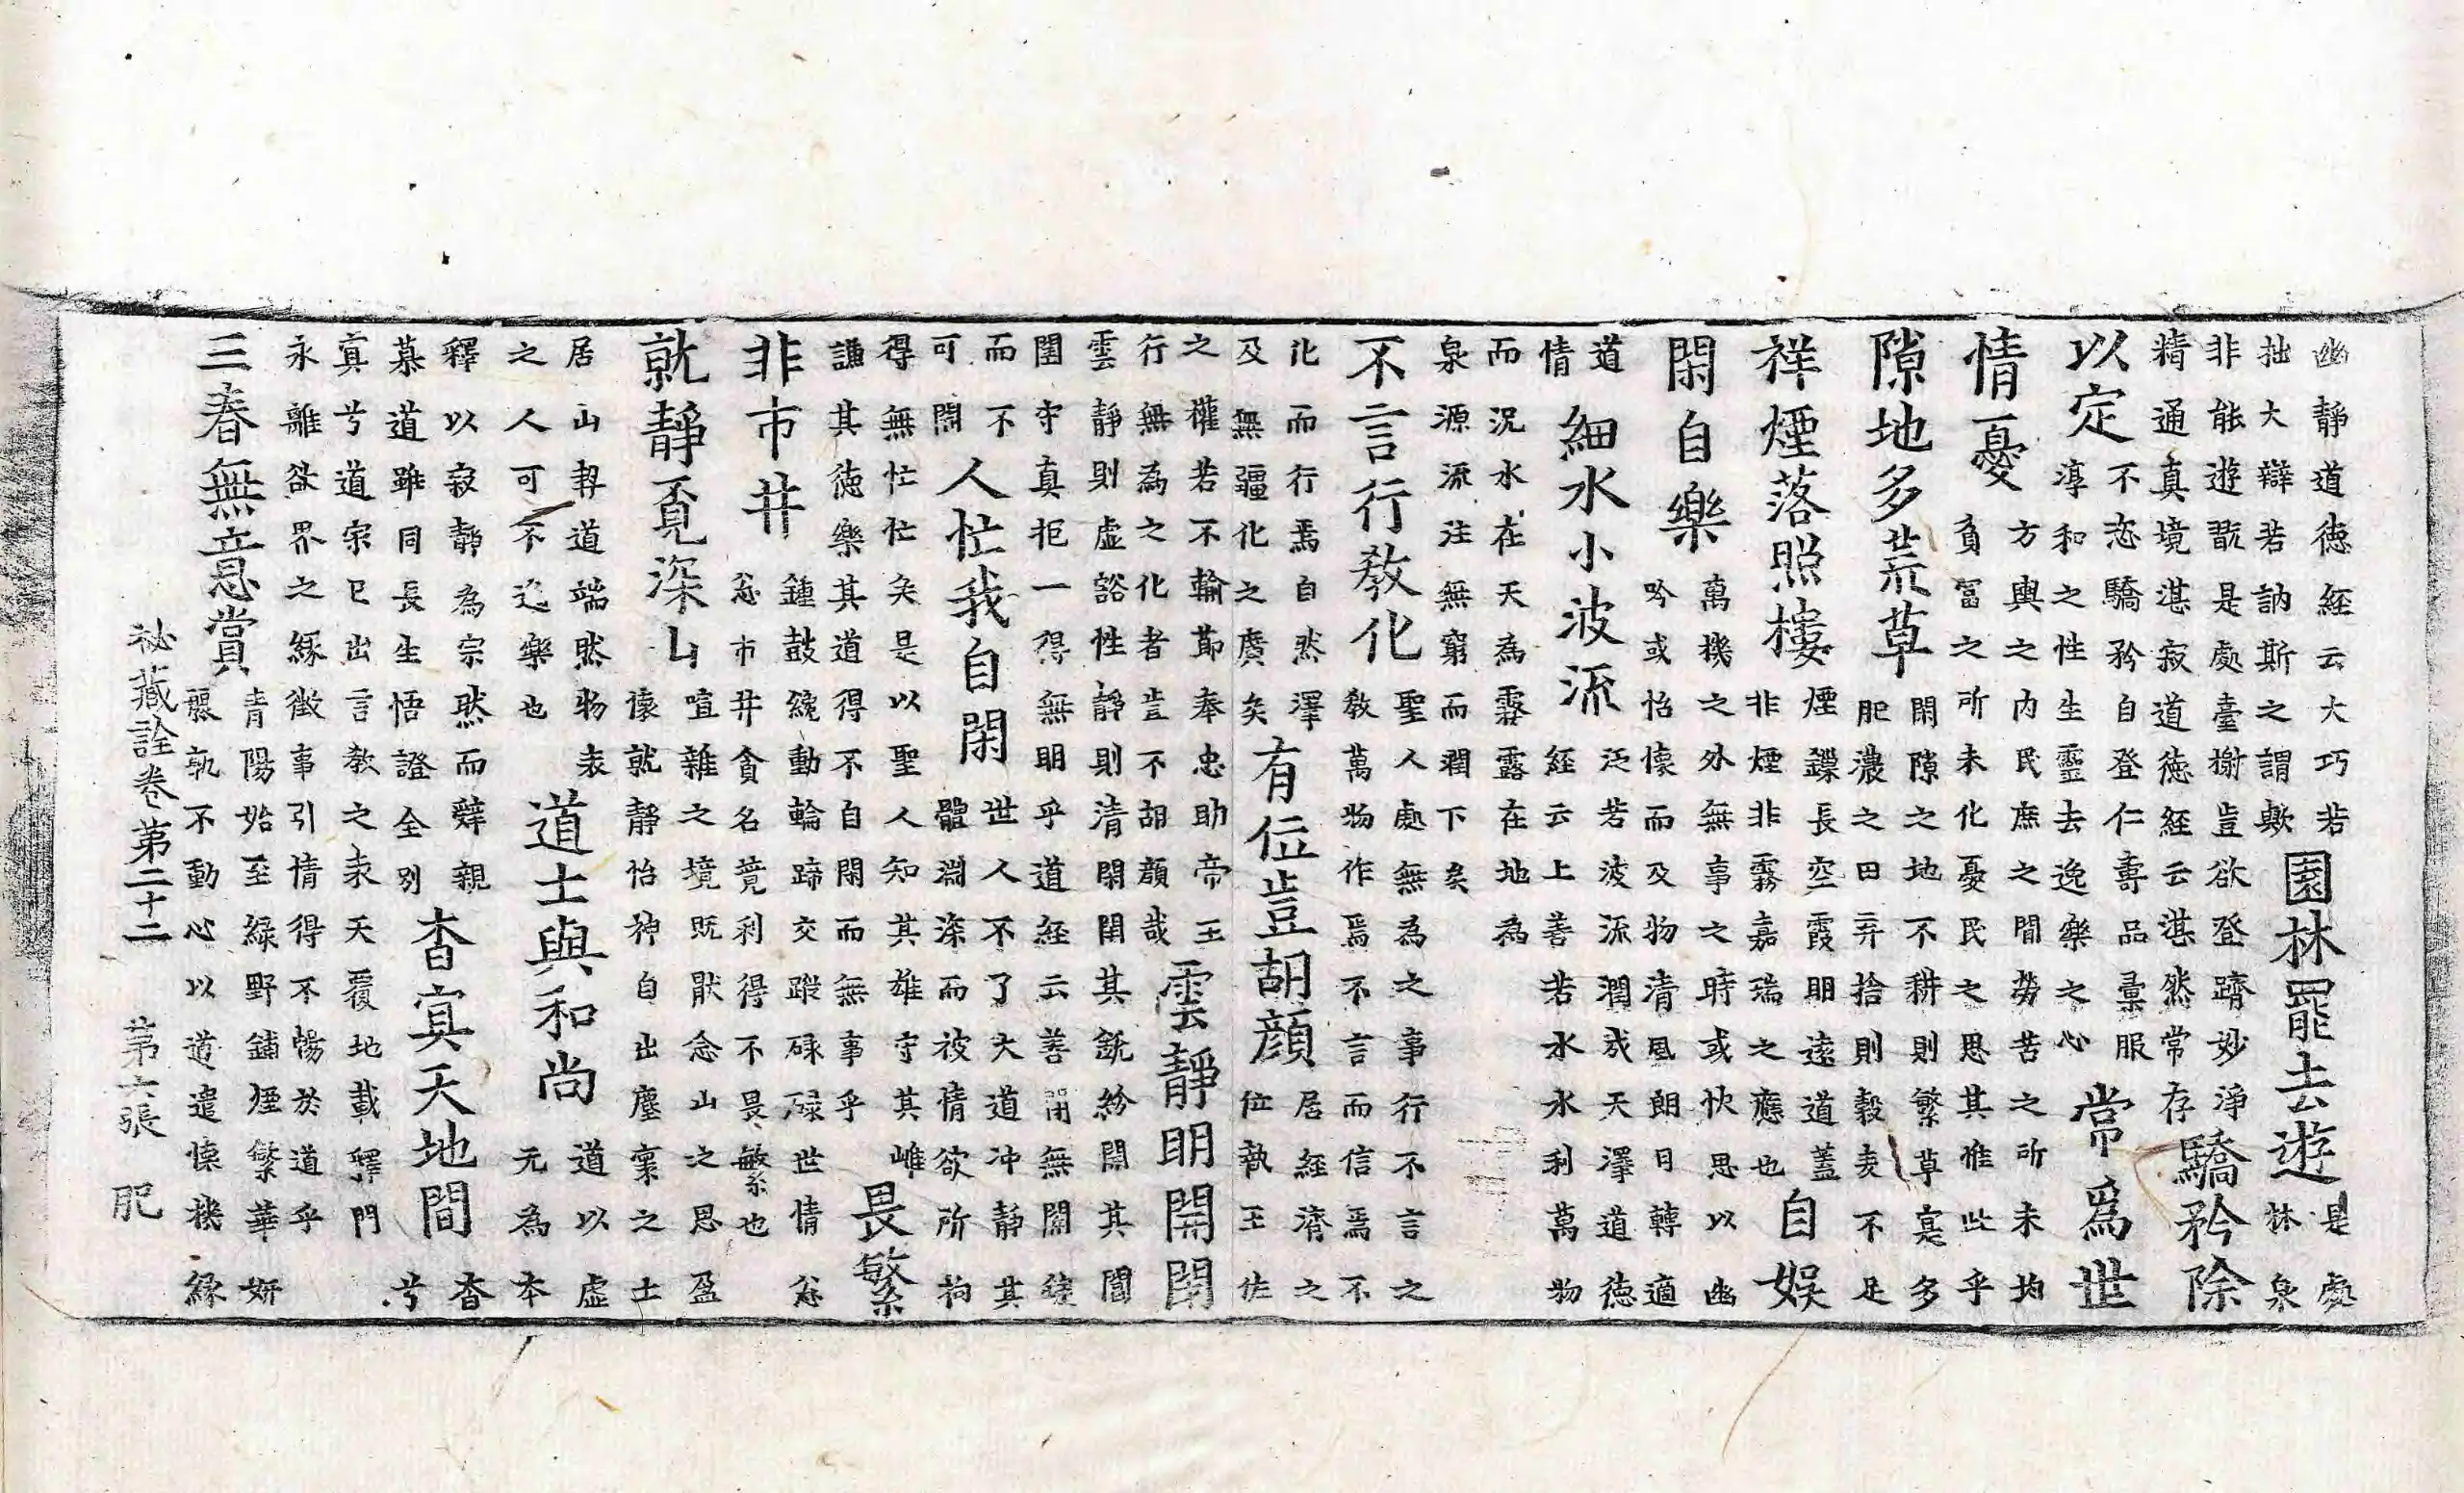 幽靜道德經云大巧若
拙大辯若訥斯之謂歟
園林罷去遊
是處
林泉
非能遊翫是處臺榭豈欲登躋妙淨
精通真境湛寂道德經云湛然常存
驕矜除
以定
不恣驕矜自登仁壽品彙服
淳和之性生靈去逸樂之心
常爲世
情憂
方輿之內民庶之間勞苦之所未均
貧富之所未化憂民之思其惟此乎
隙地多荒草
閑隙之地不耕則繁草寔多
肥濃之田弃捨則穀麦不足
祥煙落照樓
煙鏁長空霞明遠道蓋
非煙非霧嘉瑞之應也
自娛
閑自樂
萬機之外無事之時或快思以幽
吟或怡懷而及物清風朗日轉適
道
情
細水小波流
泛若波流潤成天澤道德
經云上善若水水利萬物
而況水在天為霖露在地為
泉源流注無窮而潤下矣
不言行敎化
聖人處無為之事行不言之
敎萬物作焉不言而信焉不
化而行焉自然澤
及無疆化之廣矣
有位豈胡顏
居經濟之
位執王佐
之權若不輸節奉忠助帝王
行無為之化者豈不胡顏哉
雲靜明開閉
雲靜則虛谿性靜則清閑閉其銳紛開其閶
闔守真拒一得無明乎道經云善閇無關
而不
可開
人忙我自閑
世人不了大道冲靜其
體淵深而被情欲所拘
得無忙忙矣是以聖人知其雄守其雌
謙其德樂其道得不自閑而無事乎
畏繁
非市井
鍾鼓纔動輪蹄交蹤碌碌世情忿
忿市井貪名竟利得不畏繁也
就靜覓深山
喧雜之境既猒念山之思盈
懷就靜怡神自出塵寰之士
居山契道端然物表
之人可不迨樂也
道士與和尚
道以虛
元為本
釋以寂靜為宗然而辭親
慕道雖同長生悟證全別
杳寘天地間
杳
兮
寘兮道宗已出言敎之表天覆地載釋門
永離欲界之緣徵事引情得不暢於道乎
三春無意賞
青陽始至綠野鋪煙繁華妍
麗孰不動心以道遣懷機緣
秘藏詮卷第二十二　第六張　肥